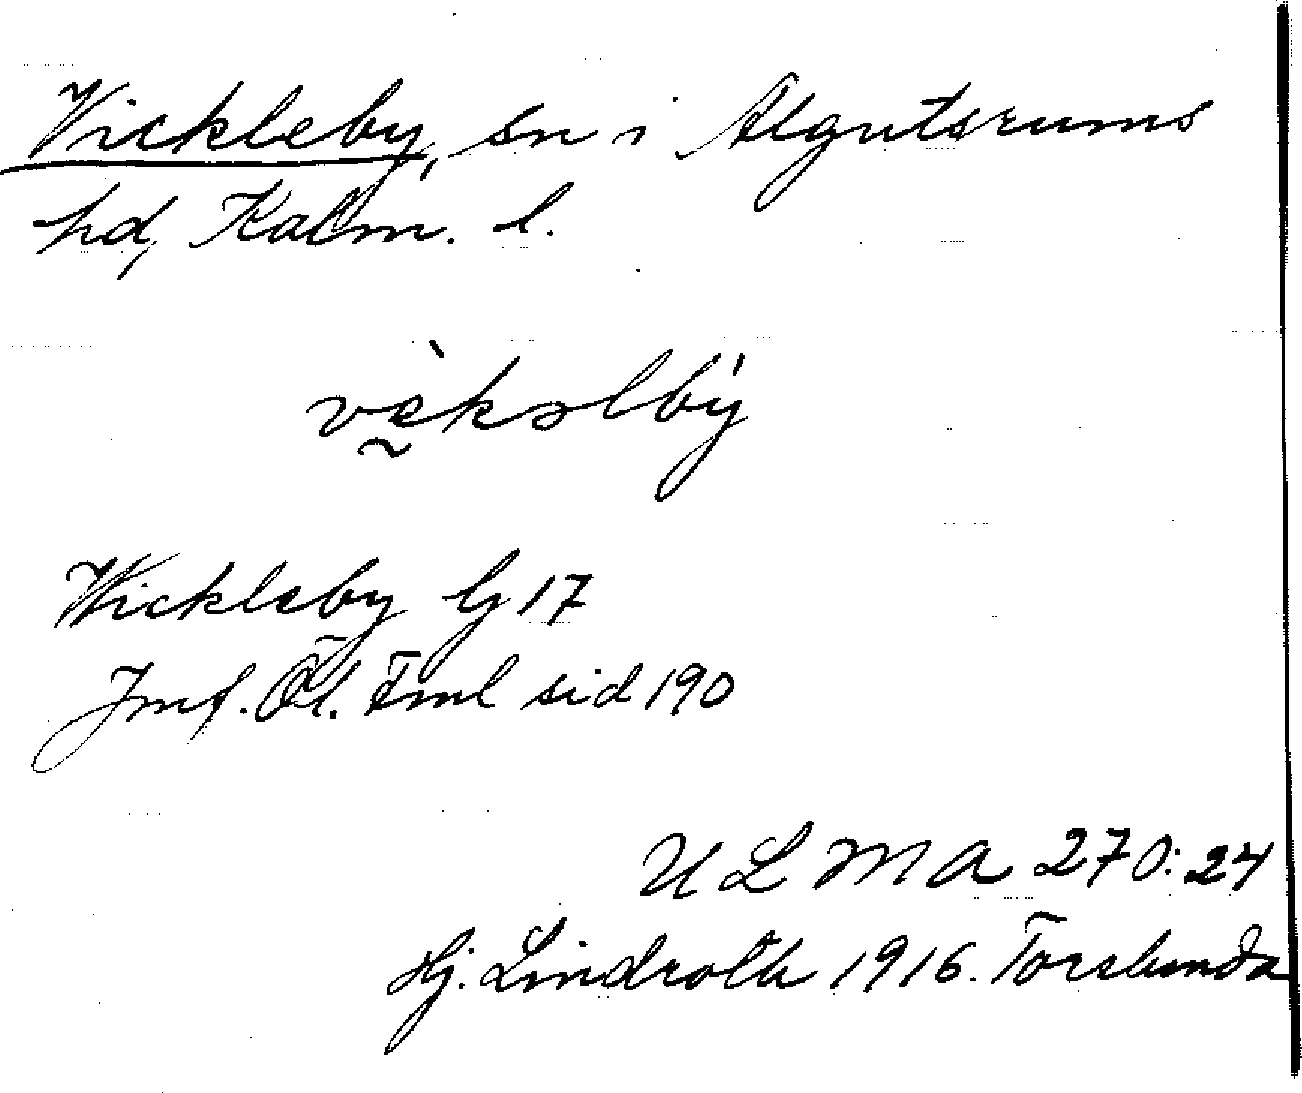 Vickleby, sn i Algutsrums
hd, Kalm. l.
vḛ̀kəlbý
Vickleby G 17
Jmf. Öl. Fml sid 190
ULMA 270:24
Hj. Lindroth 1916. Torslunda